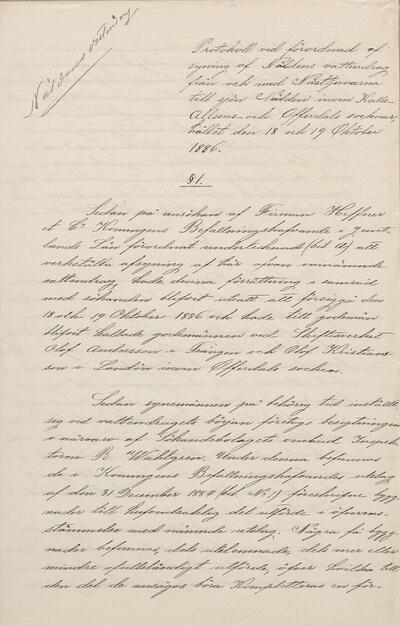 Näldens vattendrag
Protokoll vid förordnad af-
syning af Näldens vattendrag
från och med Näsktjernarna
till sjön Nälden inom Kalls-
Alsens- och Offerdals socknar,
hållet den 18 och 19 Oktober
1886.
§1.
Sedan på ansökan af Firman Heffner
et C:o Konungens Befallningshafvande i Jemt-
lands Län förordnat undertecknad (bil A) att
verkställa afsyning af här ofvan omnämnde
vattendrag, hade denna förrättning i samråd
med sökanden blifvit utsatt att försiggå den
18 och 19 Oktober 1886 och hade till godemän
blifvit kallade godemännen vid Skiftesverket
Olof Andersson i Frängen och Olof Kristians-
son i Landön inom Offerdals socken.
Sedan synemännen på behörig tid inställt
sig vid vattendragets början företogs besigtningen
i närvaro af Sökandebolagets ombud Inspek-
toren R. Wahlgren. Under denna befunnos
de i Konungens Befallningshafvandes utslag
af den 31 December 1884 (bil. N:o 1) föreskrifne bygg-
nader till hufvudsaklig del utförde i öfverens-
stämmelse med nämnde utslag. Några få bygg-
nader befunnos, dels utelemnade, dels mer eller
mindre ofullständigt utförde, öfver hvilka till
den del de ansågos böra kompletteras en för-